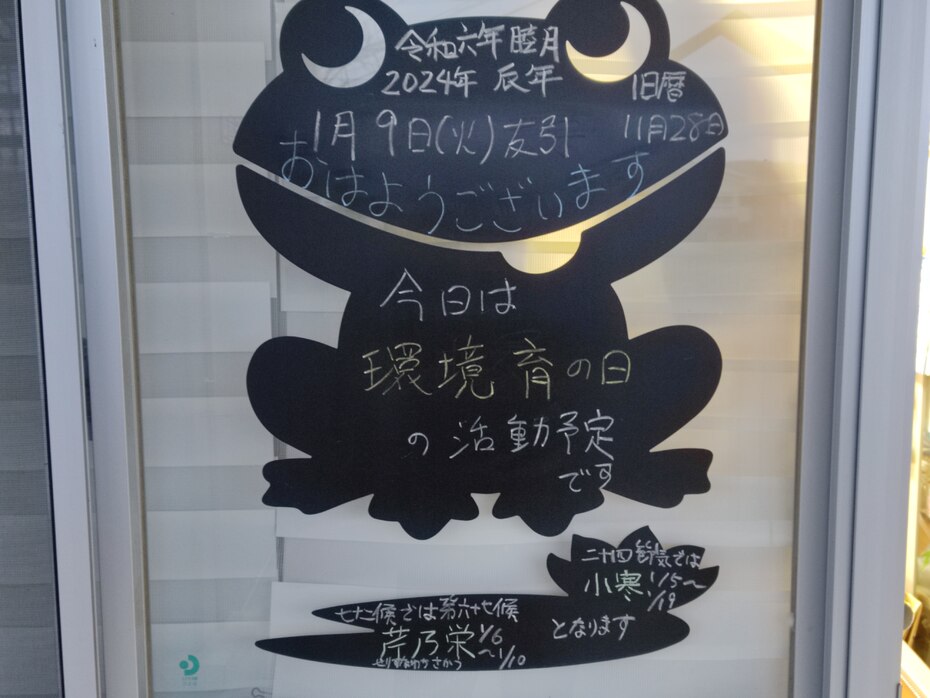 令和六年 睦月
2024年 辰年
旧暦
1月9日(火)友引
11月28日
おはようございます
今日は
環境育の日
の活動予定
です
二十四節気では
小寒 1/5～
1/19
七十二候では第六十七候
芹乃栄 1/6
～1/10
せりすなわちさかう
となります